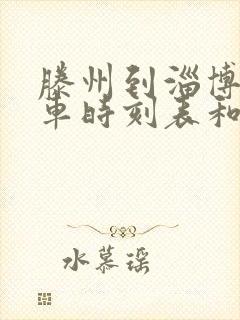 滕州到淄博
车时刻表和
水慕瑶